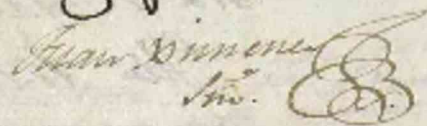 Juan Ximene
Srio.